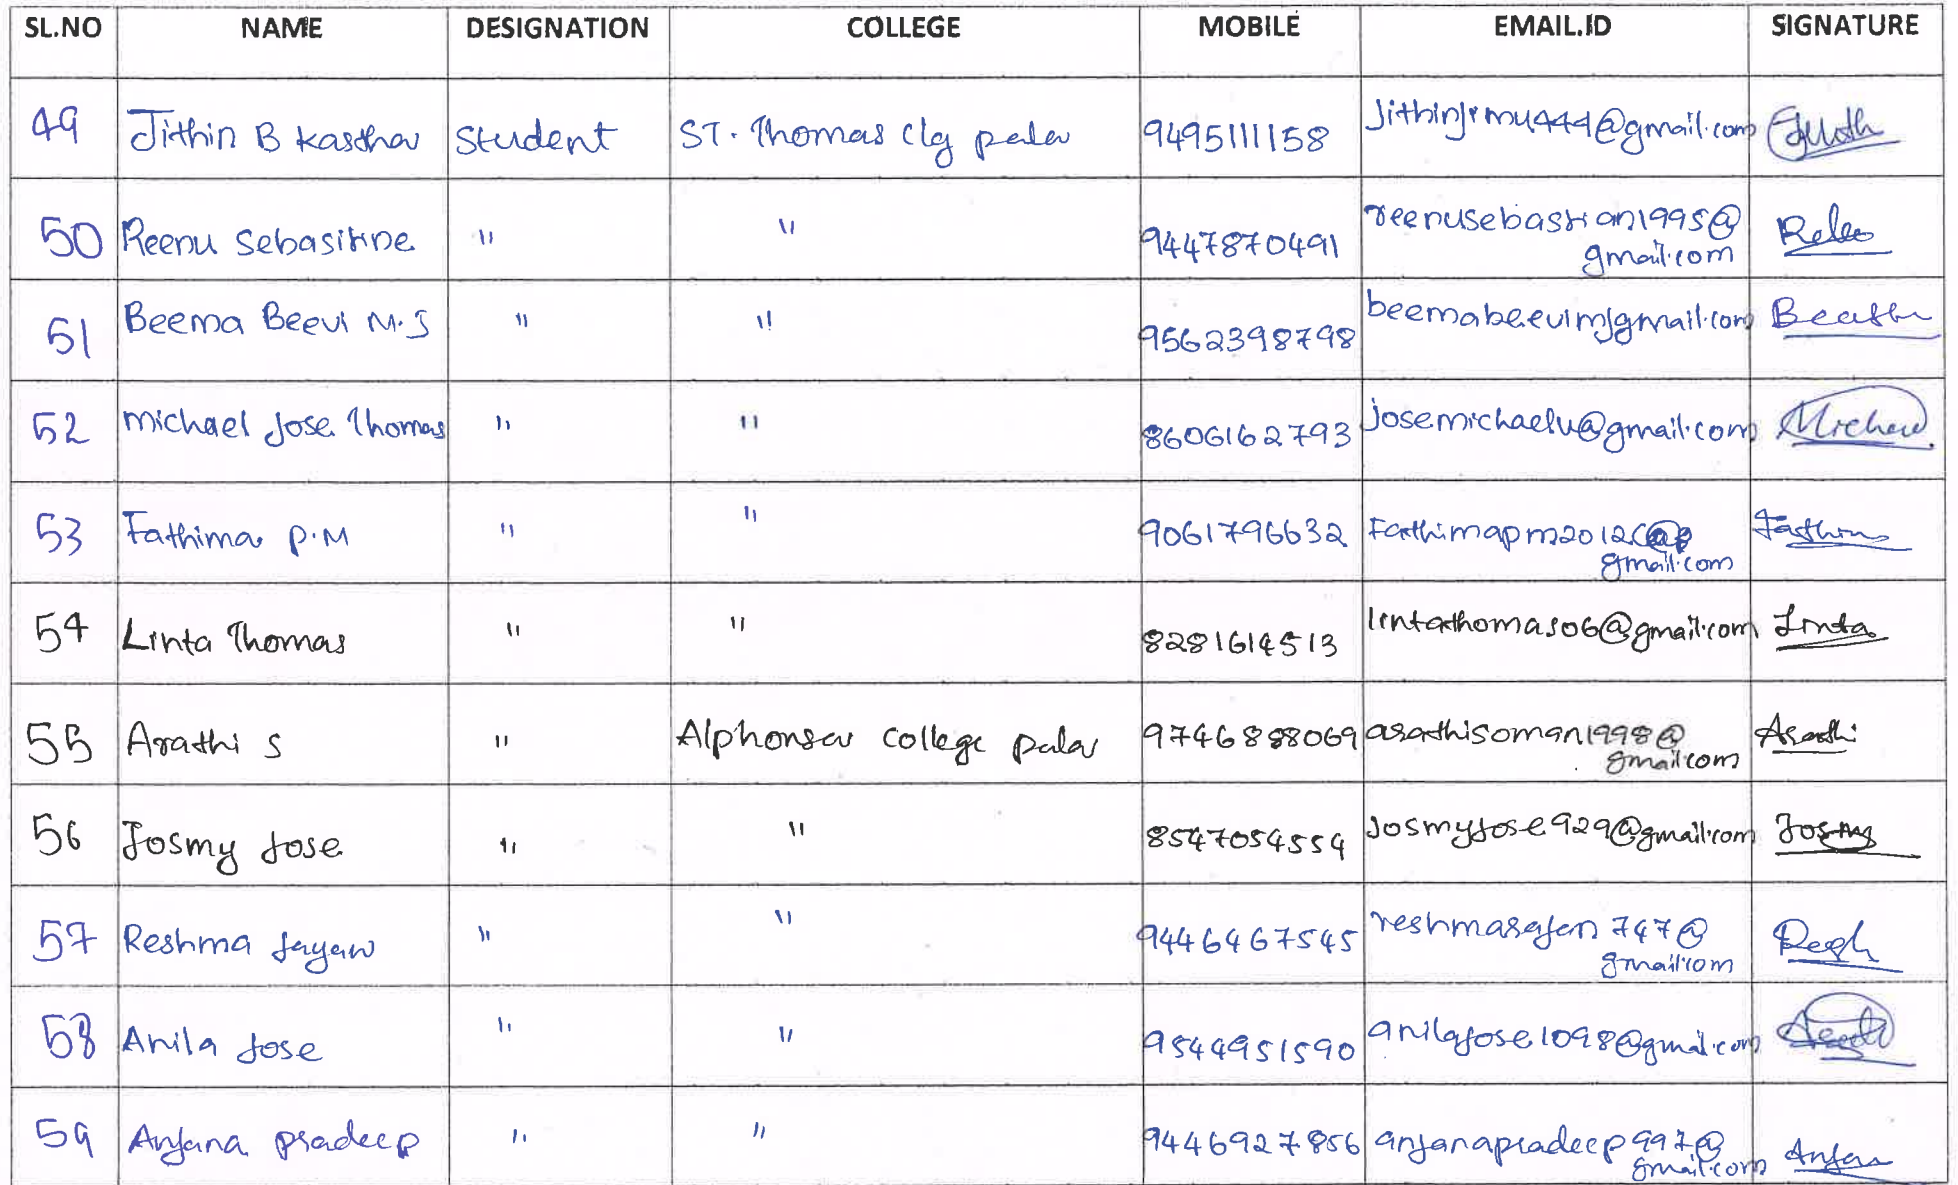 SL.NO NAME DESIGNATION COLLEGE MOBILE EMAIL.ID SIGNATURE
49 Jithin B Kasthar Student ST. Thomas clg pala 9495111158 @gmail.com
50 Reenu Sebastine " " 9447870491 reenusebastian1995@
gmail.com
51 Beema Beevi M.S " " 9562398798 beemabeevimsgmail.com
52 Michael Jose Thomas " " 8606162793 josemichaelv@gmail.com Michael
53 Fathima P.M " " 9061796632 Fathimapm2012@
gmail.com Fathima
54 Linta Thomas " " 8281614513 lintathomas06@gmail.com Linta
55 Arathi S " Alphonsa college pala 9746888069 arathisoman1998@ Arathi
gmail.com
56 Josmy Jose " " 8547054554 Josmyjose929@gmail.com Josmy
57 Reshma " " 9446467545 reshmarajan747@
gmail.com
58 Anila Jose " " 9544951590 anilajose1098@gmal.com
59 Anjana pradeep " " 9446927856 anjanapradeep997@
gmail.com Anjan